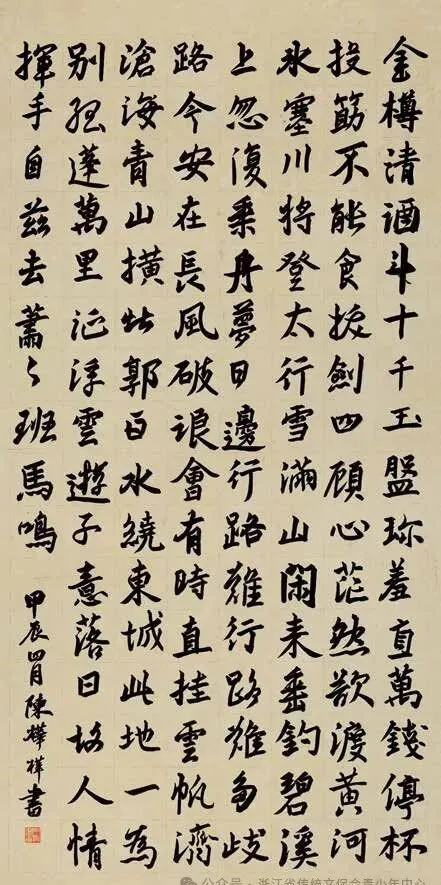 金樽清酒斗十千玉盤珍羞直萬錢停杯
投筯不能食拔劍四顧心茫然欲渡黃河
氷塞川將登太行雪滿山閑來垂釣碧溪
上忽復乘舟夢日邊行路難行路難多歧
路今安在長風破浪會有時直挂雲帆濟
滄海青山橫北郭白水繞東城此地一為
別孤蓬萬里征浮雲遊子意落日故人情
揮手自茲去蕭々班馬鳴
甲辰四月陳書
公众号 · 浙江省传统文保会青少年中心